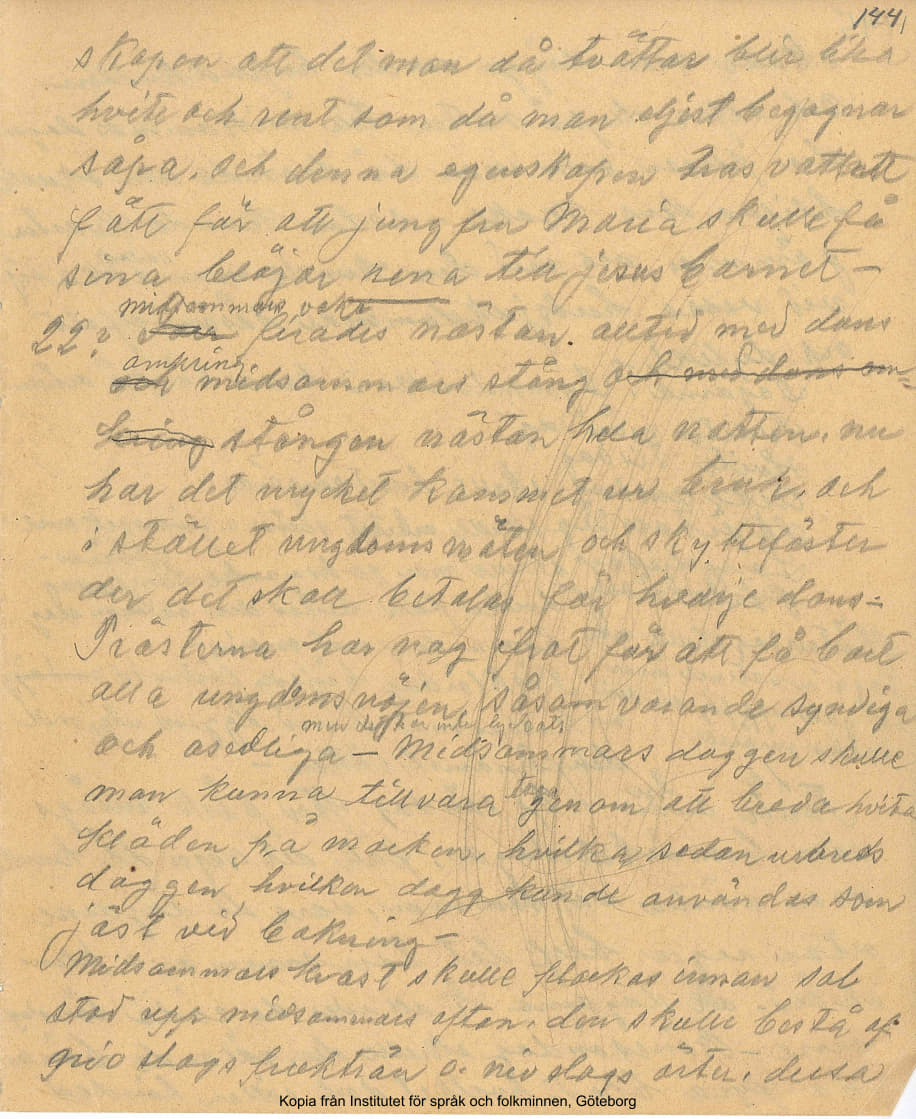 144
skapen att det man då tvättar blir lika
hvitt och rent som då man eljest begagnar
såpa. och denna egenskapen has vattnet
fått för att jungfru Maria skulle få
sina blöjor rena till jesus barnet —
midsommars vaka
22: firades nästan alltid med dans
omkring
midsommars stång och med dans om=
kring stången nästan hela natten. nu
har det mycket kommet ur bruk. och
i stället ungdoms möten och skyttefäster
der det skall betalas för hvarje dans=
Prästerna har nog ifrat för att få bort
alla ungdomsnöjen, såsom varande syndiga
men det har inte lyckats
och osedliga — Midsommars daggen skulle
taga
man kunna tillvara genom att breda hvita
kläden på marken. hvilka sedan urbreds
daggen, hvilken dagg kunde användas som
jäst vid bakning —
Midsommars kvast skulle plockas innan sol
stod upp midsommars afton. den skulle bestå af
nio slags fruktträn o. nio slags örter. dessa
Kopia från Institutet för språk och folkminnen, Göteborg